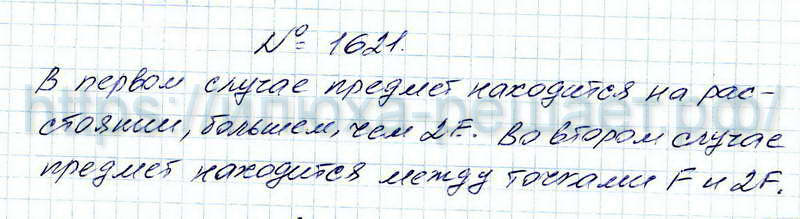 № 1621.
В первом случае предмет находится на рас-
стоянии, большем, чем 2F. Во втором случае
предмет находится между точками F и 2F.